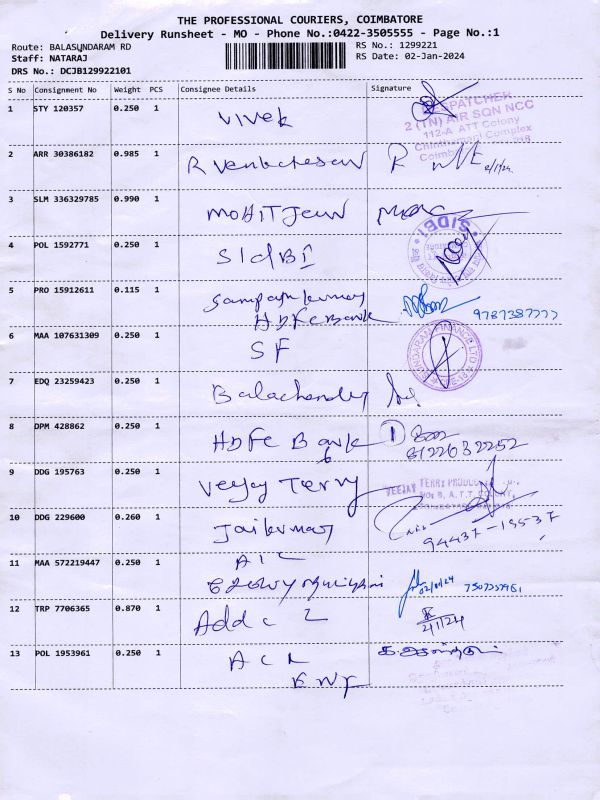 THE PROFESSIONAL COURIERS, COIMBATORE
Delivery Runsheet - MO - Phone No.:0422-3505555 - Page No.:1
Route: BALASUNDARAM RD
Staff: NATARAJ
DRS No.: DCJB129922101
RS No.: 1299221
RS Date: 02-Jan-2024
S No Consignment No Weight PCS Consignee Details Signature
1 STY 120357 0.250 1 Vivek
DESPATCHER
2 (TN) AIR SQN NCC
112-A ATT Colony
Chinthamani Complex
2 ARR 30386182 0.985 1 R Venkatesan R 2/1/24
3 SLM 336329785 0.990 1 MOHIT Jain
4 POL 1592771 0.250 1 SIdBI SIDBI
5 PRO 15912611 0.115 1 Sampathkumar
HDFC Bank 9787387777
6 MAA 107631309 0.250 1 SF SUNDARAM FINANCE LTD
7 EDQ 23259423 0.250 1 Balachander
8 DPM 428862 0.250 1 HDFC Bank
8122632252
9 DDG 195763 0.250 1 Veejay Terry VEEJAY TERRY
10 DDG 229600 0.260 1 Jaikumar 94437-15537
11 MAA 572219447 0.250 1 02/01/24
12 TRP 7706365 0.870 1 2/1/24
13 POL 1953961 0.250 1